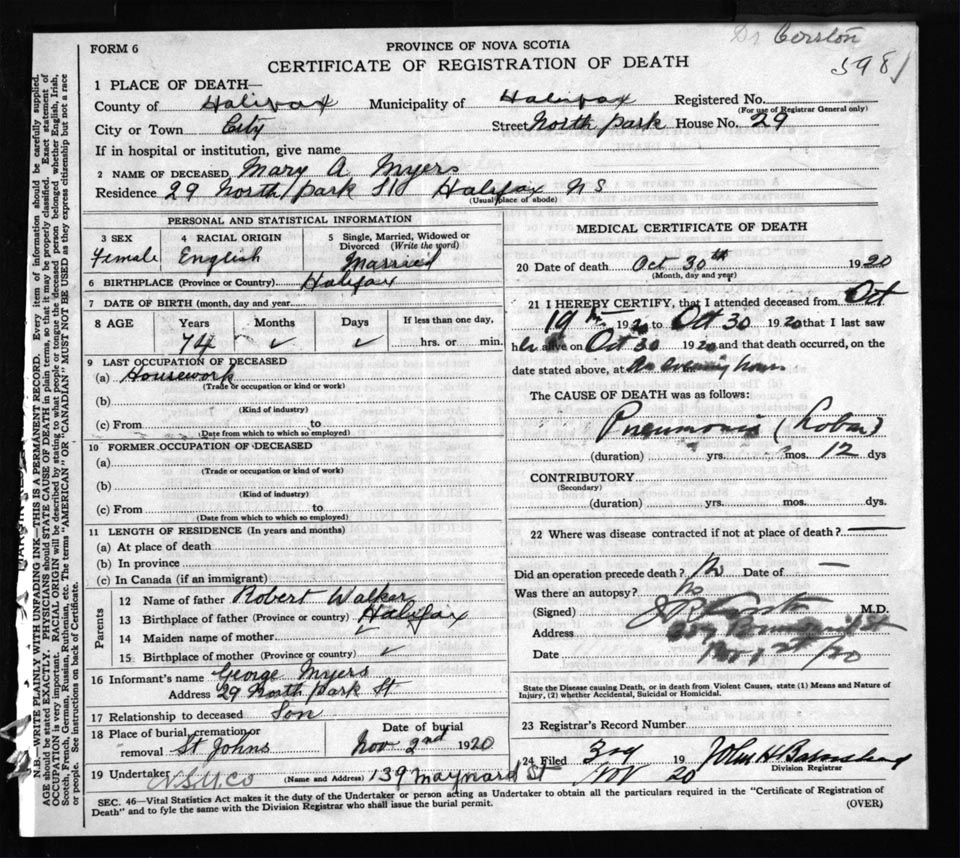 Dr Corston
FORM 6
PROVINCE OF NOVA SCOTIA
CERTIFICATE OF REGISTRATION OF DEATH
5981
1 PLACE OF DEATH—
County of Halifax Municipality of Halifax Registered No.
(For use of Registrar General only)
City or Town City Street North Park House No. 29
If in hospital or institution, give name
2 NAME OF DECEASED Mary A Myers
Residence 29 North Park St Halifax N S
(Usual place of abode)
PERSONAL AND STATISTICAL INFORMATION
3 SEX 4 RACIAL ORIGIN 5 Single, Married, Widowed or Divorced (Write the word)
Female English Married
6 BIRTHPLACE (Province or Country) Halifax
7 DATE OF BIRTH (month, day and year)
8 AGE Years Months Days If less than one day,
74 ✓ ✓ hrs. or min.
9 LAST OCCUPATION OF DECEASED
(a) Housework
(Trade or occupation or kind of work)
(b)
(Kind of industry)
(c) From to
(Date from which to which so employed)
10 FORMER OCCUPATION OF DECEASED
(a)
(Trade or occupation or kind of work)
(b)
(Kind of industry)
(c) From to
(Date from which to which so employed)
11 LENGTH OF RESIDENCE (In years and months)
(a) At place of death
(b) In province
(c) In Canada (if an immigrant)
Parents
12 Name of father Robert Walker
13 Birthplace of father (Province or country) Halifax
14 Maiden name of mother ✓
15 Birthplace of mother (Province or country) ✓
16 Informant's name George Myers
Address 29 North Park St
17 Relationship to deceased Son
18 Place of burial, cremation or removal St Johns
Date of burial
Nov 2nd 1920
19 Undertaker N.S.U.Co (Name and Address) 139 Maynard St
MEDICAL CERTIFICATE OF DEATH
20 Date of death Oct 30th 1920
(Month, day and year)
21 I HEREBY CERTIFY, that I attended deceased from Oct
19th 1920 to Oct 30 1920 that I last saw
her alive on Oct 30 1920 and that death occurred, on the
date stated above, at an evening hour
The CAUSE OF DEATH was as follows:
Pneumonia (Lobar)
(duration) yrs. mos. 12 dys
CONTRIBUTORY
(Secondary)
(duration) yrs. mos. dys.
22 Where was disease contracted if not at place of death? —
Did an operation precede death? No Date of —
Was there an autopsy? No
(Signed) M.D.
Address
Date Nov 1st /20
State the Disease causing Death, or in death from Violent Causes, state (1) Means and Nature of
Injury, (2) whether Accidental, Suicidal or Homicidal.
23 Registrar's Record Number
24 Filed 3rd Nov 1920 John H
Division Registrar
SEC. 46—Vital Statistics Act makes it the duty of the Undertaker or person acting as Undertaker to obtain all the particulars required in the "Certificate of Registration of
Death" and to fyle the same with the Division Registrar who shall issue the burial permit.
(OVER)
N.B.—WRITE PLAINLY WITH UNFADING INK—THIS IS A PERMANENT RECORD. Every item of information should be carefully supplied.
AGE should be stated EXACTLY. PHYSICIANS should STATE CAUSE OF DEATH in plain terms, so that it may be properly classified. Exact statement of
OCCUPATION is very important. RACIAL ORIGIN will be described by stating to what people or tongue the deceased person belonged whether English, Irish,
Scotch, French, German, Russian, Ruthenian, etc. The terms "AMERICAN" OR "CANADIAN" MUST NOT BE USED as they express citizenship but not a race
or people. See instructions on back of Certificate.